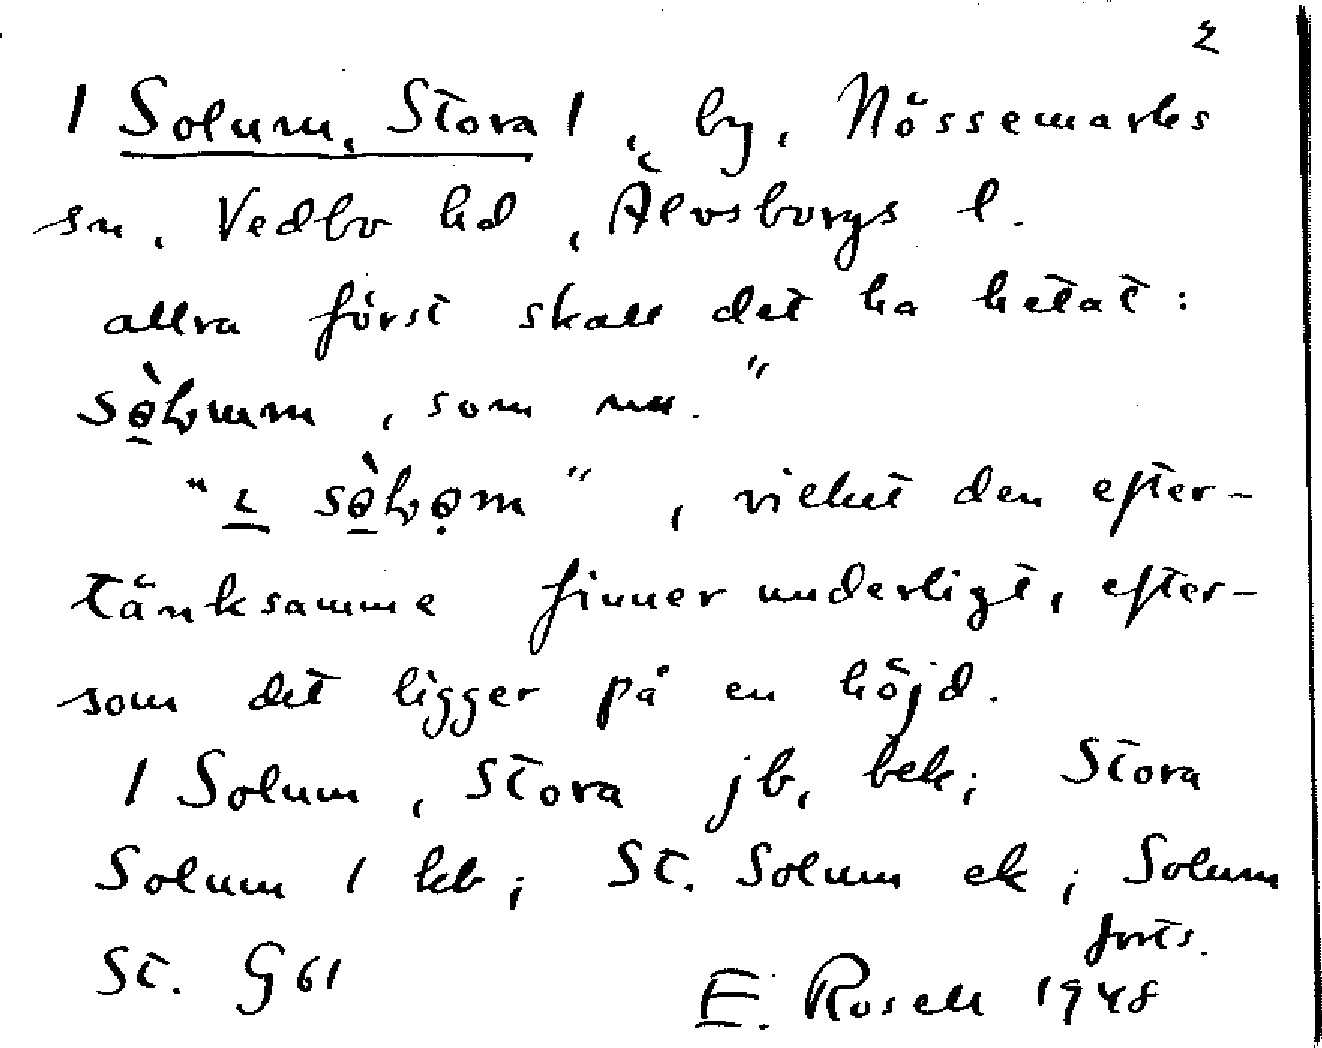 2
/ Solum, Stora /, by, Nössemarks
sn, Vedbo hd, Älvsborgs l.
allra först skall det ha hetat:
sö̀lumm, som nu."
"ɩ sö̀ləm", vilket den efter-
tänksamme finner underligt, efter-
som det ligger på en höjd.
/ Solum, Stora jb, bek; Stora
Solum / kb; St. Solum ek; Solum
St. G 61
forts.
E. Rosell 1948